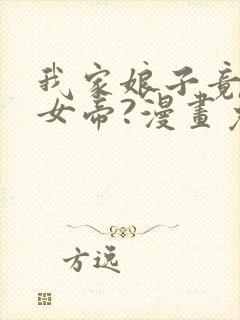 我家娘子竟
女帝?漫畫
方远